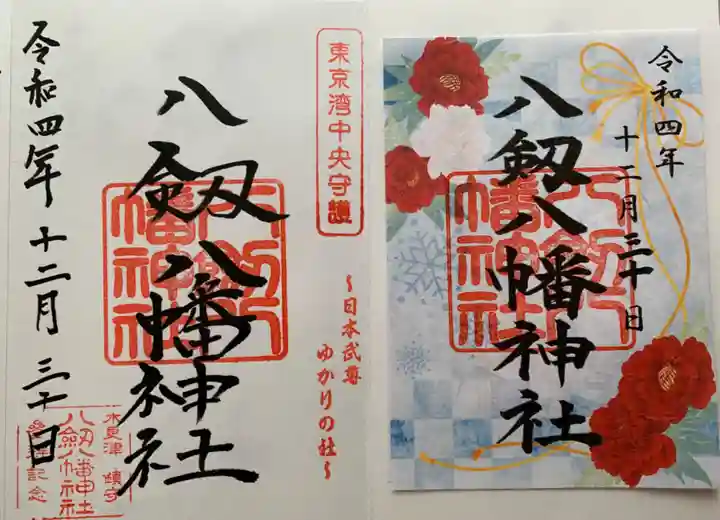 東京湾中央守護
〜日本武尊
ゆかりの社〜
八剱八幡神社
八剱八幡神社
令和四年十二月三十日
木更津 鎮守
八剱八幡神社
参拝記念
令和四年
十二月三十日
八剱八幡神社
八剱八幡神社